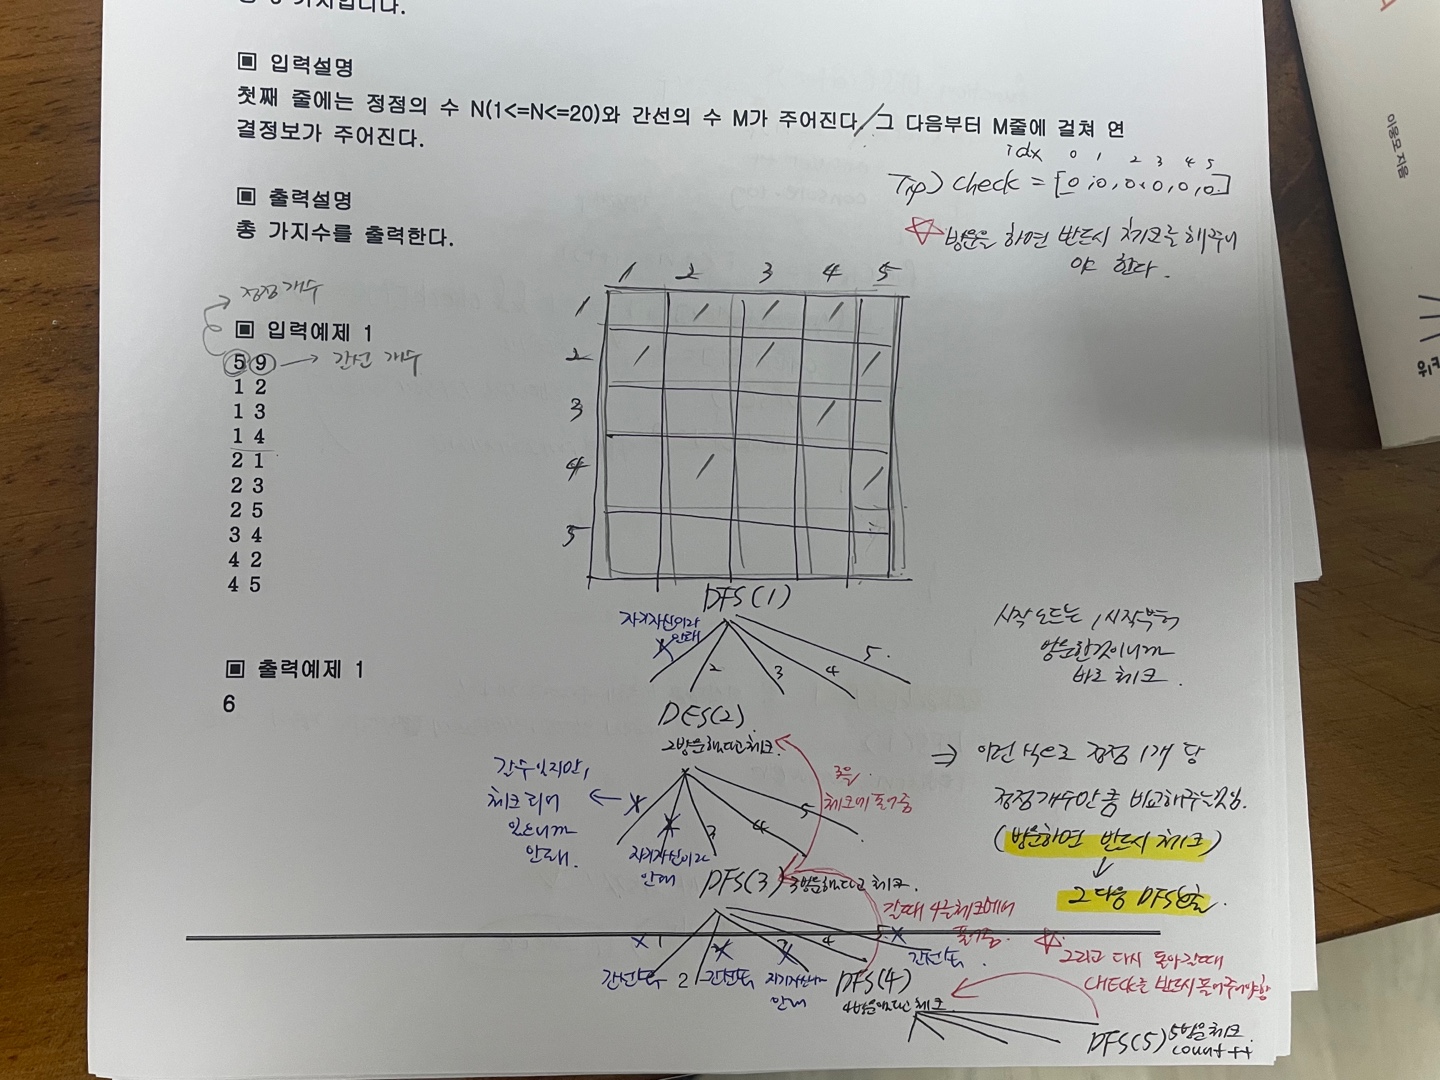 총 6 가지입니다.
▣ 입력설명
첫째 줄에는 정점의 수 N(1<=N<=20)와 간선의 수 M가 주어진다. 그 다음부터 M줄에 걸쳐 연
결정보가 주어진다.
idx 0 1 2 3 4 5
Tip) check = [0,0,0,0,0,0]
▣ 출력설명
총 가지수를 출력한다.
☆ 방문을 하면 반드시 체크를 해주어
야 한다.
1 2 3 4 5
1
2
3
4
5
정점개수
▣ 입력예제 1
5 9 → 간선 개수
1 2
1 3
1 4
2 1
2 3
2 5
3 4
4 2
4 5
▣ 출력예제 1
6
DFS(1)
자기자신이라
안돼
1 2 3 4 5
시작노드는 1, 시작부터
방문한것이니까
바로 체크.
DFS(2)
2방문했다고 체크.
갈수있지만,
체크되어
있으니까
안돼.
1 2 3 4 5
자기자신이라
안돼
3을
체크에 풀어줌
⇒ 이런 식으로 정점 1개 당
정점개수만큼 비교해주는것임.
(방문하면 반드시 체크)
↓
그 다음 DFS호출.
DFS(3) 3방문했다고 체크.
갈때 4를체크에서
풀어줌.
x 1 2 3 4 5 x
간선 2 간선 자기자신이라
안돼
간선
DFS(4)
4방문했다고 체크
☆ 그리고 다시 돌아갈때
CHECK를 반드시 풀어주어야함
DFS(5) 5방문 체크
count ++
이용모 지음
위키